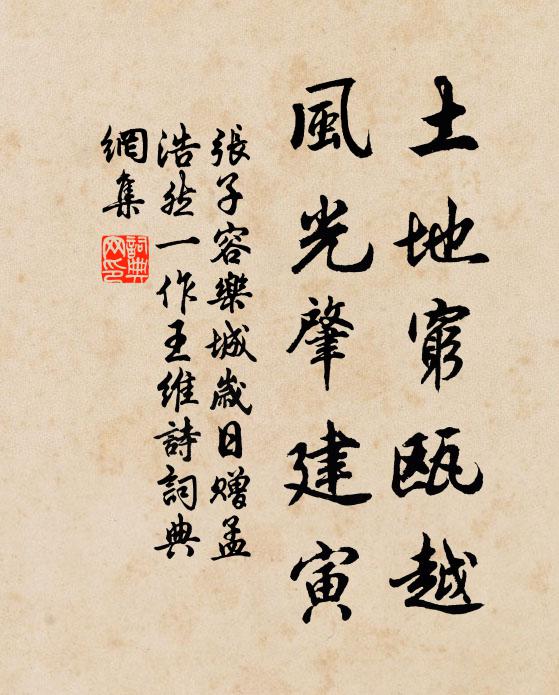 土地窮甌越
風光肇建寅
張子容樂城歲日贈孟
浩然一作王維詩詞典
網集
詞典
网印